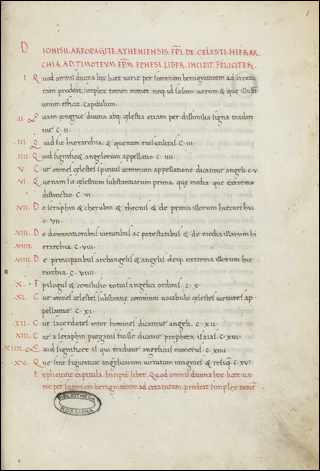 DIONISII AREOPAGITE ATHENIENSIS EPI DE CELESTI HIERAR
CHIA AD TIMOTEVM EPM EPHESI LIBER INCIPIT FELICITER
I Quod omnis divina lux licet varie per summam benignitatem ad creatu
ram prodeat, simplex tamen manet neq id solum verum & que illust
unitur efficit. Capitulum.
II Quam congrue divina atq celestia etiam per dissimilia signa tradun
tur C. II
III Quid sit hierarchia & quenam eius utilitas C. III
IIII Quid significet angelorum appellatio C. IIII
V Cur omnes celestes spiritus communi appellatione dicantur angeli C. V
VI Quenam sit celestium substantiarum prima que media que extrema
distinctio C. VI
VII De seraphin & cherubin & thronis & de prima illorum hierarchia
C. VII
VIII De dominationibus virtutibus ac potestatibus & de media illarum hi
erarchia C. VIII
VIIII De principatibus archangelis & angelis deq extrema illorum hie
rarchia C. VIIII
X Epilogus & conclusio totius angelici ordinis C. X
XI Cur omnes celestes substantie communi vocabulo celestes virtutes ap
pellantur C. XI
XII Cur sacerdotes inter homines dicantur angeli C. XII
XIII Cur a seraphin purgatus fuisse dicatur propheta isaias C. XIII
XIIII Quid significet is qui traditur angelicus numerus C. XIIII
XV Que sint figurative angelicarum virtutum imagines & reliq C. XV
Expliciunt capitula. Incipit liber. Quod omnis divina lux licet va
rie per summam benignitatem ad creaturam prodeat simplex tamen
BIBLIOTHECA